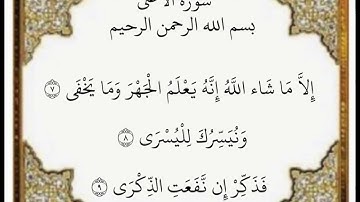 سورة الأعلى
بسم الله الرحمن الرحيم
إِلاَّ مَا شَاء اللَّهُ إِنَّهُ يَعْلَمُ الْجَهْرَ وَمَا يَخْفَى ٧
وَنُيَسِّرُكَ لِلْيُسْرَى ٨
فَذَكِّرْ إِن نَّفَعَتِ الذِّكْرَى ٩